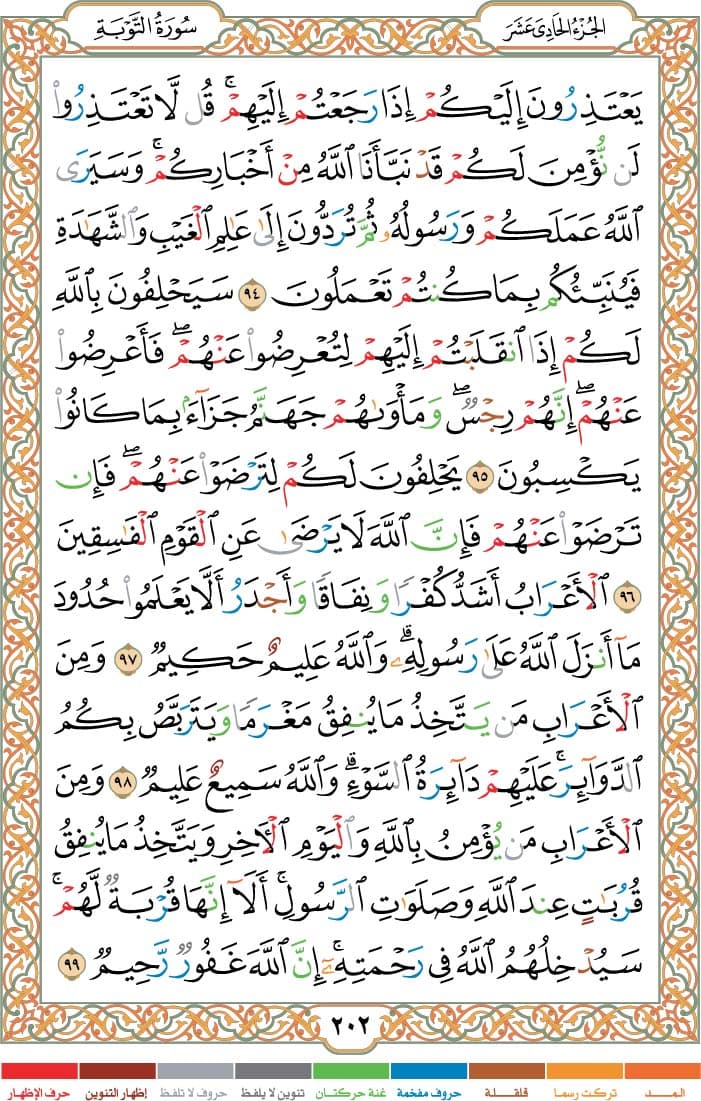 الجُزْءُ الحَادِي عَشَرَ
سُورَةُ التَّوْبَةِ
يَعْتَذِرُونَ إِلَيْكُمْ إِذَا رَجَعْتُمْ إِلَيْهِمْ ۚ قُل لَّا تَعْتَذِرُوا۟
لَن نُّؤْمِنَ لَكُمْ قَدْ نَبَّأَنَا ٱللَّهُ مِنْ أَخْبَارِكُمْ ۚ وَسَيَرَى
ٱللَّهُ عَمَلَكُمْ وَرَسُولُهُۥ ثُمَّ تُرَدُّونَ إِلَىٰ عَـٰلِمِ ٱلْغَيْبِ وَٱلشَّهَـٰدَةِ
فَيُنَبِّئُكُم بِمَا كُنتُمْ تَعْمَلُونَ ٩٤ سَيَحْلِفُونَ بِٱللَّهِ
لَكُمْ إِذَا ٱنقَلَبْتُمْ إِلَيْهِمْ لِتُعْرِضُوا۟ عَنْهُمْ ۖ فَأَعْرِضُوا۟
عَنْهُمْ ۖ إِنَّهُمْ رِجْسٌ ۖ وَمَأْوَىٰهُمْ جَهَنَّمُ جَزَآءًۢ بِمَا كَانُوا۟
يَكْسِبُونَ ٩٥ يَحْلِفُونَ لَكُمْ لِتَرْضَوْا۟ عَنْهُمْ ۖ فَإِن
تَرْضَوْا۟ عَنْهُمْ فَإِنَّ ٱللَّهَ لَا يَرْضَىٰ عَنِ ٱلْقَوْمِ ٱلْفَـٰسِقِينَ
٩٦ ٱلْأَعْرَابُ أَشَدُّ كُفْرًا وَنِفَاقًا وَأَجْدَرُ أَلَّا يَعْلَمُوا۟ حُدُودَ
مَآ أَنزَلَ ٱللَّهُ عَلَىٰ رَسُولِهِۦ ۗ وَٱللَّهُ عَلِيمٌ حَكِيمٌ ٩٧ وَمِنَ
ٱلْأَعْرَابِ مَن يَتَّخِذُ مَا يُنفِقُ مَغْرَمًا وَيَتَرَبَّصُ بِكُمُ
ٱلدَّوَآئِرَ ۚ عَلَيْهِمْ دَآئِرَةُ ٱلسَّوْءِ ۗ وَٱللَّهُ سَمِيعٌ عَلِيمٌ ٩٨ وَمِنَ
ٱلْأَعْرَابِ مَن يُؤْمِنُ بِٱللَّهِ وَٱلْيَوْمِ ٱلْـَٔاخِرِ وَيَتَّخِذُ مَا يُنفِقُ
قُرُبَـٰتٍ عِندَ ٱللَّهِ وَصَلَوَٰتِ ٱلرَّسُولِ ۚ أَلَآ إِنَّهَا قُرْبَةٌ لَّهُمْ ۚ
سَيُدْخِلُهُمُ ٱللَّهُ فِى رَحْمَتِهِۦٓ ۗ إِنَّ ٱللَّهَ غَفُورٌ رَّحِيمٌ ٩٩
٢٠٢
المـــد تركت رسما قلقلة حروف مفخمة غنة حركتان تنوين لا يلفظ حروف لا تلفظ إظهار التنوين حرف الإظهار